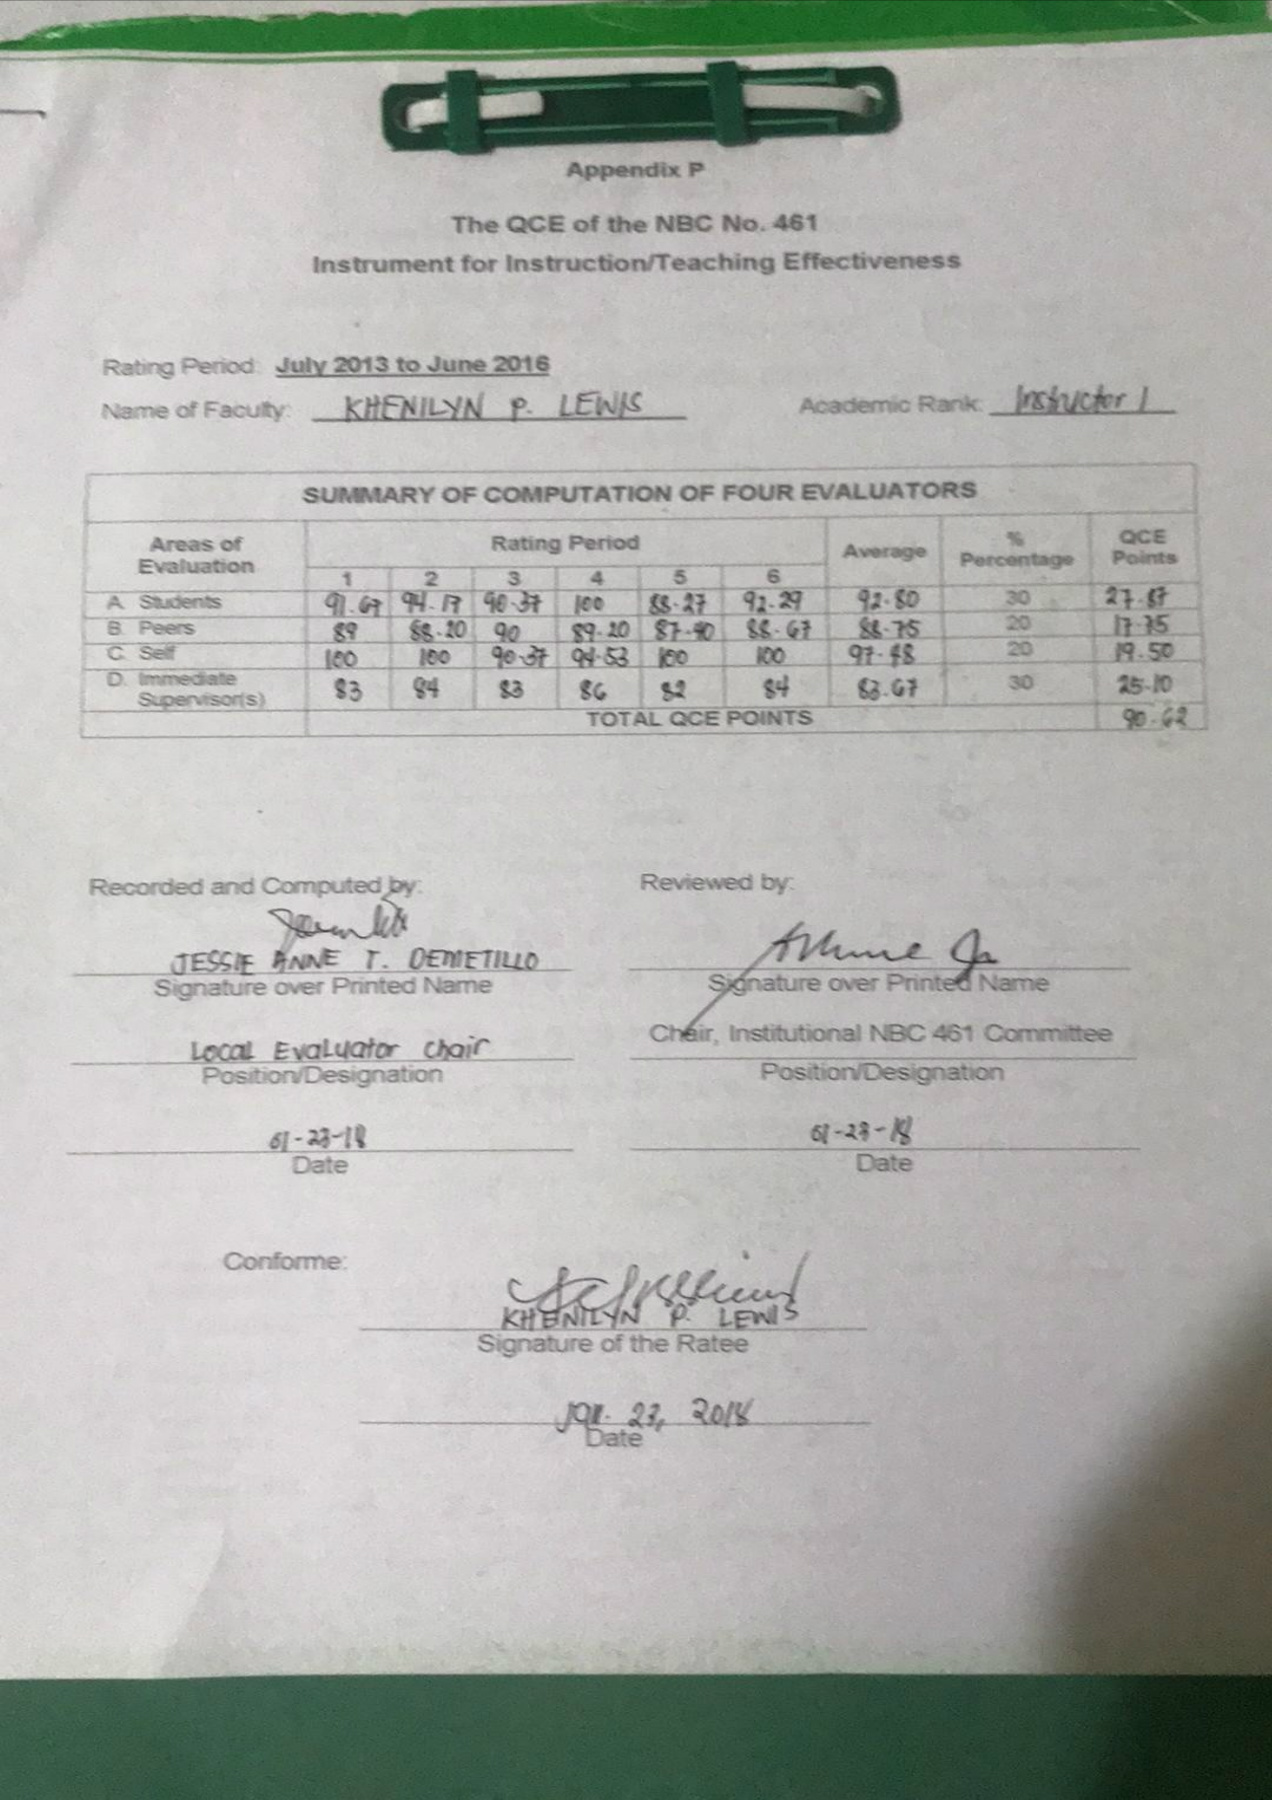 Appendix P
The QCE of the NBC No. 461
Instrument for Instruction/Teaching Effectiveness
Rating Period: July 2013 to June 2016
Name of Faculty: KHENILYN P. LEWIS Academic Rank: Instructor I
SUMMARY OF COMPUTATION OF FOUR EVALUATORS
Areas of Evaluation Rating Period Average % Percentage QCE Points
1 2 3 4 5 6
A. Students 91.67 94.17 90.37 100 88.27 92.29 92.80 30 27.87
B. Peers 89 88.20 90 89.20 87.40 88.67 88.75 20 17.75
C. Self 100 100 90.37 94.53 100 100 97.48 20 19.50
D. Immediate Supervisor(s) 83 84 83 86 82 84 83.67 30 25.10
TOTAL QCE POINTS 90.62
Recorded and Computed by: Reviewed by:
JESSIE ANNE T. DEMETILLO
Signature over Printed Name Signature over Printed Name
Local Evaluator Chair Chair, Institutional NBC 461 Committee
Position/Designation Position/Designation
01-23-18 01-23-18
Date Date
Conforme:
KHENILYN P. LEWIS
Signature of the Ratee
Jan. 23, 2018
Date